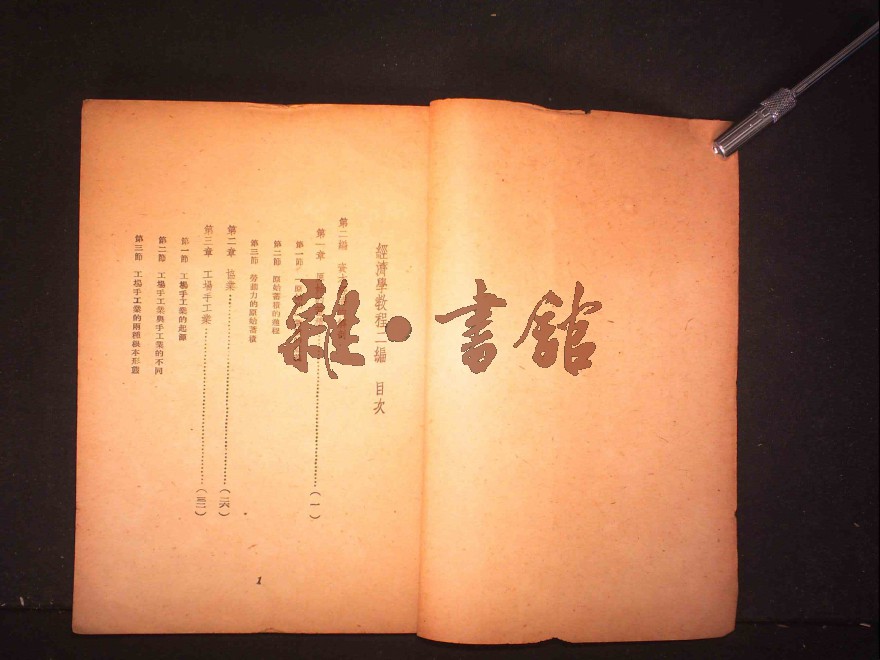 經濟學教程二編 目次
第二編
第一章
第一節
第二節 原始蓄積的過程
第三節 勞動力的原始蓄積
第二章 協業…………(二六)
第三章 工場手工業…………(三二)
第一節 工場手工業的起源
第二節 工場手工業與手工業的不同
第三節 工場手工業的兩種根本形態
(一)
1
雜·書館